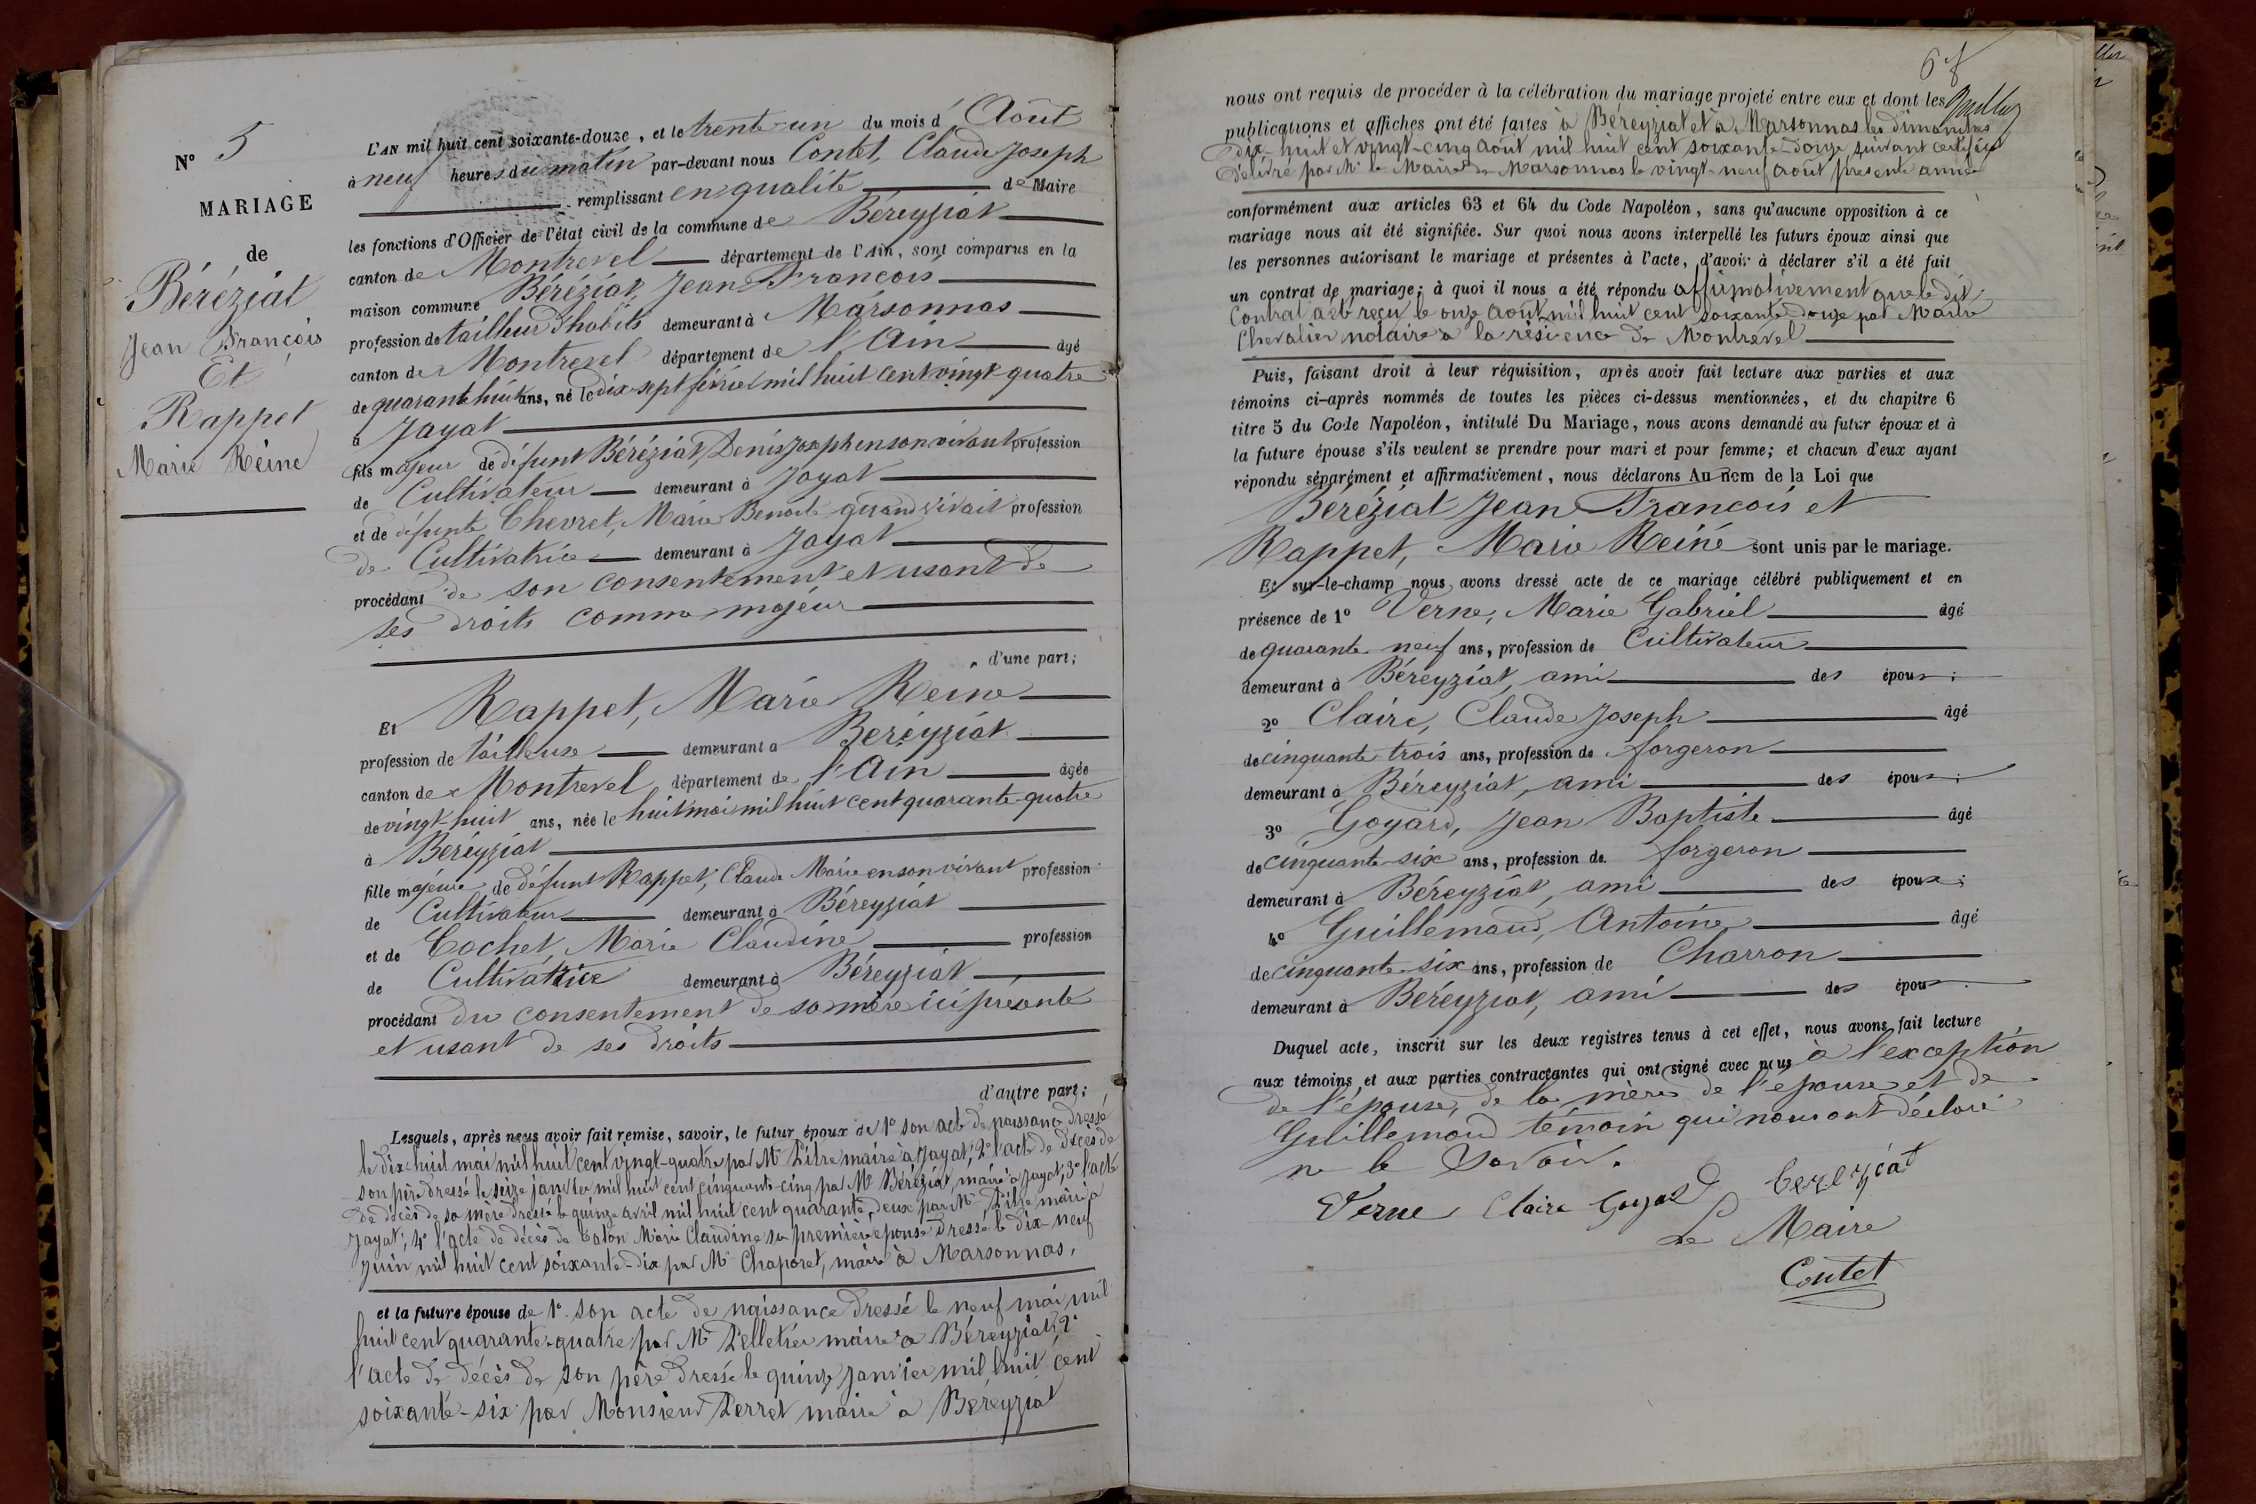 N° 5
MARIAGE
de
Béréziat
Jean François
Et
Rappet
Marie Reine
L'AN mil huit cent soixante-douze, et le trente-un du mois d'Août
à neuf heures du matin par-devant nous Contet, Claude Joseph
remplissant en qualité de Maire
les fonctions d'Officier de l'état civil de la commune de Béreyziat
canton de Montrevel département de l'Ain, sont comparus en la
maison commune Béréziat, Jean François
profession de tailleur d'habits demeurant à Marsonnas
canton de Montrevel département de l'Ain âgé
de quarante huit ans, né le dix-sept février mil huit cent vingt-quatre
à Jayat
fils majeur de défunt Béréziat, Denis Joseph en son vivant profession
de Cultivateur demeurant à Jayat
et de défunte Chevret, Marie Benoite quand vivait profession
de Cultivatrice demeurant à Jayat
procédant de son consentement et usant de
ses droits comme majeur
d'une part;
Et Rappet, Marie Reine
profession de tailleuse demeurant à Béreyziat
canton de Montrevel département de l'Ain âgée
de vingt-huit ans, née le huit mai mil huit cent quarante-quatre
à Béréyziat
fille majeure de défunt Rappet, Claude Marie en son vivant profession
de Cultivateur demeurant à Béreyziat
et de Cochet, Marie Claudine profession
de Cultivatrice demeurant à Béreyziat
procédant du consentement de sa mère ici présente
et usant de ses droits
d'autre part;
Lesquels, après nous avoir fait remise, savoir, le futur époux de 1° son acte de naissance dressé
le dix-huit mai mil huit cent vingt-quatre par Mr Pitre maire à Jayat; 2° l'acte de décès de
son père dressé le seize janvier mil huit cent cinquante-cinq par Mr Béréziat, maire à Jayat; 3° l'acte
de décès de sa mère dressé le quinze avril mil huit cent quarante-deux par Mr Pitre maire à
Jayat; 4° l'acte de décès de Caton Marie Claudine sa première épouse dressé le dix-neuf
juin mil huit cent soixante-dix par Mr Chaporet, maire à Marsonnas,
et la future épouse de 1° son acte de naissance dressé le neuf mai mil
huit cent quarante-quatre par Mr Pelletier maire à Béreyziat; 2°
l'acte de décès de son père dressé le quinze janvier mil huit cent
soixante-six par Monsieur Perret maire à Béreyziat
nous ont requis de procéder à la célébration du mariage projeté entre eux et dont les
publications et affiches ont été faites à Béreyziat et à Marsonnas les dimanches
dix-huit et vingt-cinq août mil huit cent soixante-douze suivant certificat
délivré par Mr le Maire de Marsonnas le vingt-neuf août présente année
conformément aux articles 63 et 64 du Code Napoléon, sans qu'aucune opposition à ce
mariage nous ait été signifiée. Sur quoi nous avons interpellé les futurs époux ainsi que
les personnes autorisant le mariage et présentes à l'acte, d'avoir à déclarer s'il a été fait
un contrat de mariage; à quoi il nous a été répondu affirmativement que le dit
Contrat a été reçu le onze août mil huit cent soixante-douze par Maître
Chevalier notaire à la résidence de Montrevel
Puis, faisant droit à leur réquisition, après avoir fait lecture aux parties et aux
témoins ci-après nommés de toutes les pièces ci-dessus mentionnées, et du chapitre 6
titre 5 du Code Napoléon, intitulé Du Mariage, nous avons demandé au futur époux et à
la future épouse s'ils veulent se prendre pour mari et pour femme; et chacun d'eux ayant
répondu séparément et affirmativement, nous déclarons Au nom de la Loi que
Béréziat Jean François et
Rappet, Marie Reine sont unis par le mariage.
Et sur-le-champ nous avons dressé acte de ce mariage célébré publiquement et en
présence de 1° Verne, Marie Gabriel âgé
de quarante neuf ans, profession de Cultivateur
demeurant à Béreyziat, ami des époux;
2° Claire, Claude Joseph âgé
de cinquante-trois ans, profession de forgeron
demeurant à Béreyziat, ami des époux;
3° Goyard, Jean Baptiste âgé
de cinquante-six ans, profession de forgeron
demeurant à Béreyziat, ami des époux;
4° Guillemaud, Antoine âgé
de cinquante-six ans, profession de Charron
demeurant à Béreyziat, ami des époux.
Duquel acte, inscrit sur les deux registres tenus à cet effet, nous avons fait lecture
aux témoins et aux parties contractantes qui ont signé avec nous à l'exception
de l'épouse, de la mère de l'épouse et de
Guillemaud témoin qui nous ont déclaré
ne le savoir.
Verne Claire Goyard berezéat
Le Maire
Contet